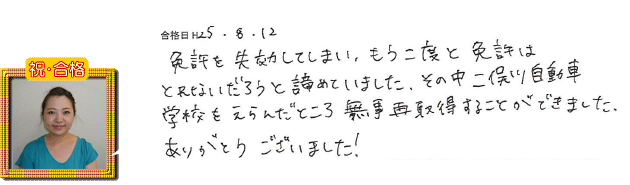 合格日 H25・8・12
祝・合格
免許を失効してしまい、もう二度と免許は
とれないだろうと諦めていました。その中二俣川自動車
学校をえらんだところ無事再取得することができました。
ありがとうございました!